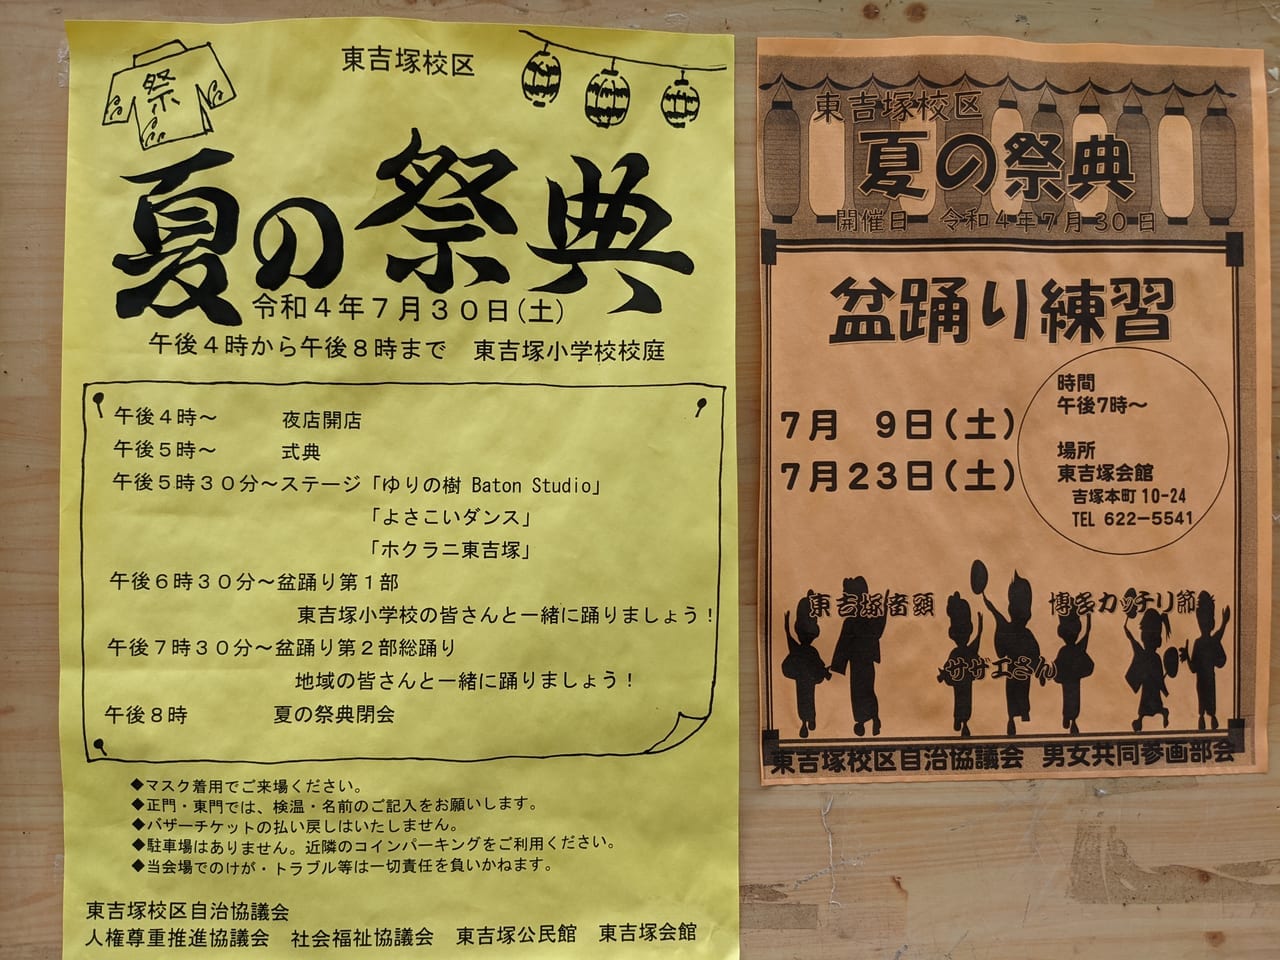 東吉塚校区
祭
夏の祭典
令和4年7月30日(土)
午後4時から午後8時まで　東吉塚小学校校庭
午後4時～　夜店開店
午後5時～　式典
午後5時30分～ステージ「ゆりの樹 Baton Studio」
「よさこいダンス」
「ホクラニ東吉塚」
午後6時30分～盆踊り第1部
東吉塚小学校の皆さんと一緒に踊りましょう!
午後7時30分～盆踊り第2部総踊り
地域の皆さんと一緒に踊りましょう!
午後8時　夏の祭典閉会
◆マスク着用でご来場ください。
◆正門・東門では、検温・名前のご記入をお願いします。
◆バザーチケットの払い戻しはいたしません。
◆駐車場はありません。近隣のコインパーキングをご利用ください。
◆当会場でのけが・トラブル等は一切責任を負いかねます。
東吉塚校区自治協議会
人権尊重推進協議会　社会福祉協議会　東吉塚公民館　東吉塚会館
東吉塚校区
夏の祭典
開催日　令和4年7月30日
盆踊り練習
7月　9日(土)
7月23日(土)
時間
午後7時～
場所
東吉塚会館
吉塚本町10-24
TEL 622-5541
東吉塚音頭
博多カッチリ節
サザエさん
東吉塚校区自治協議会　男女共同参画部会